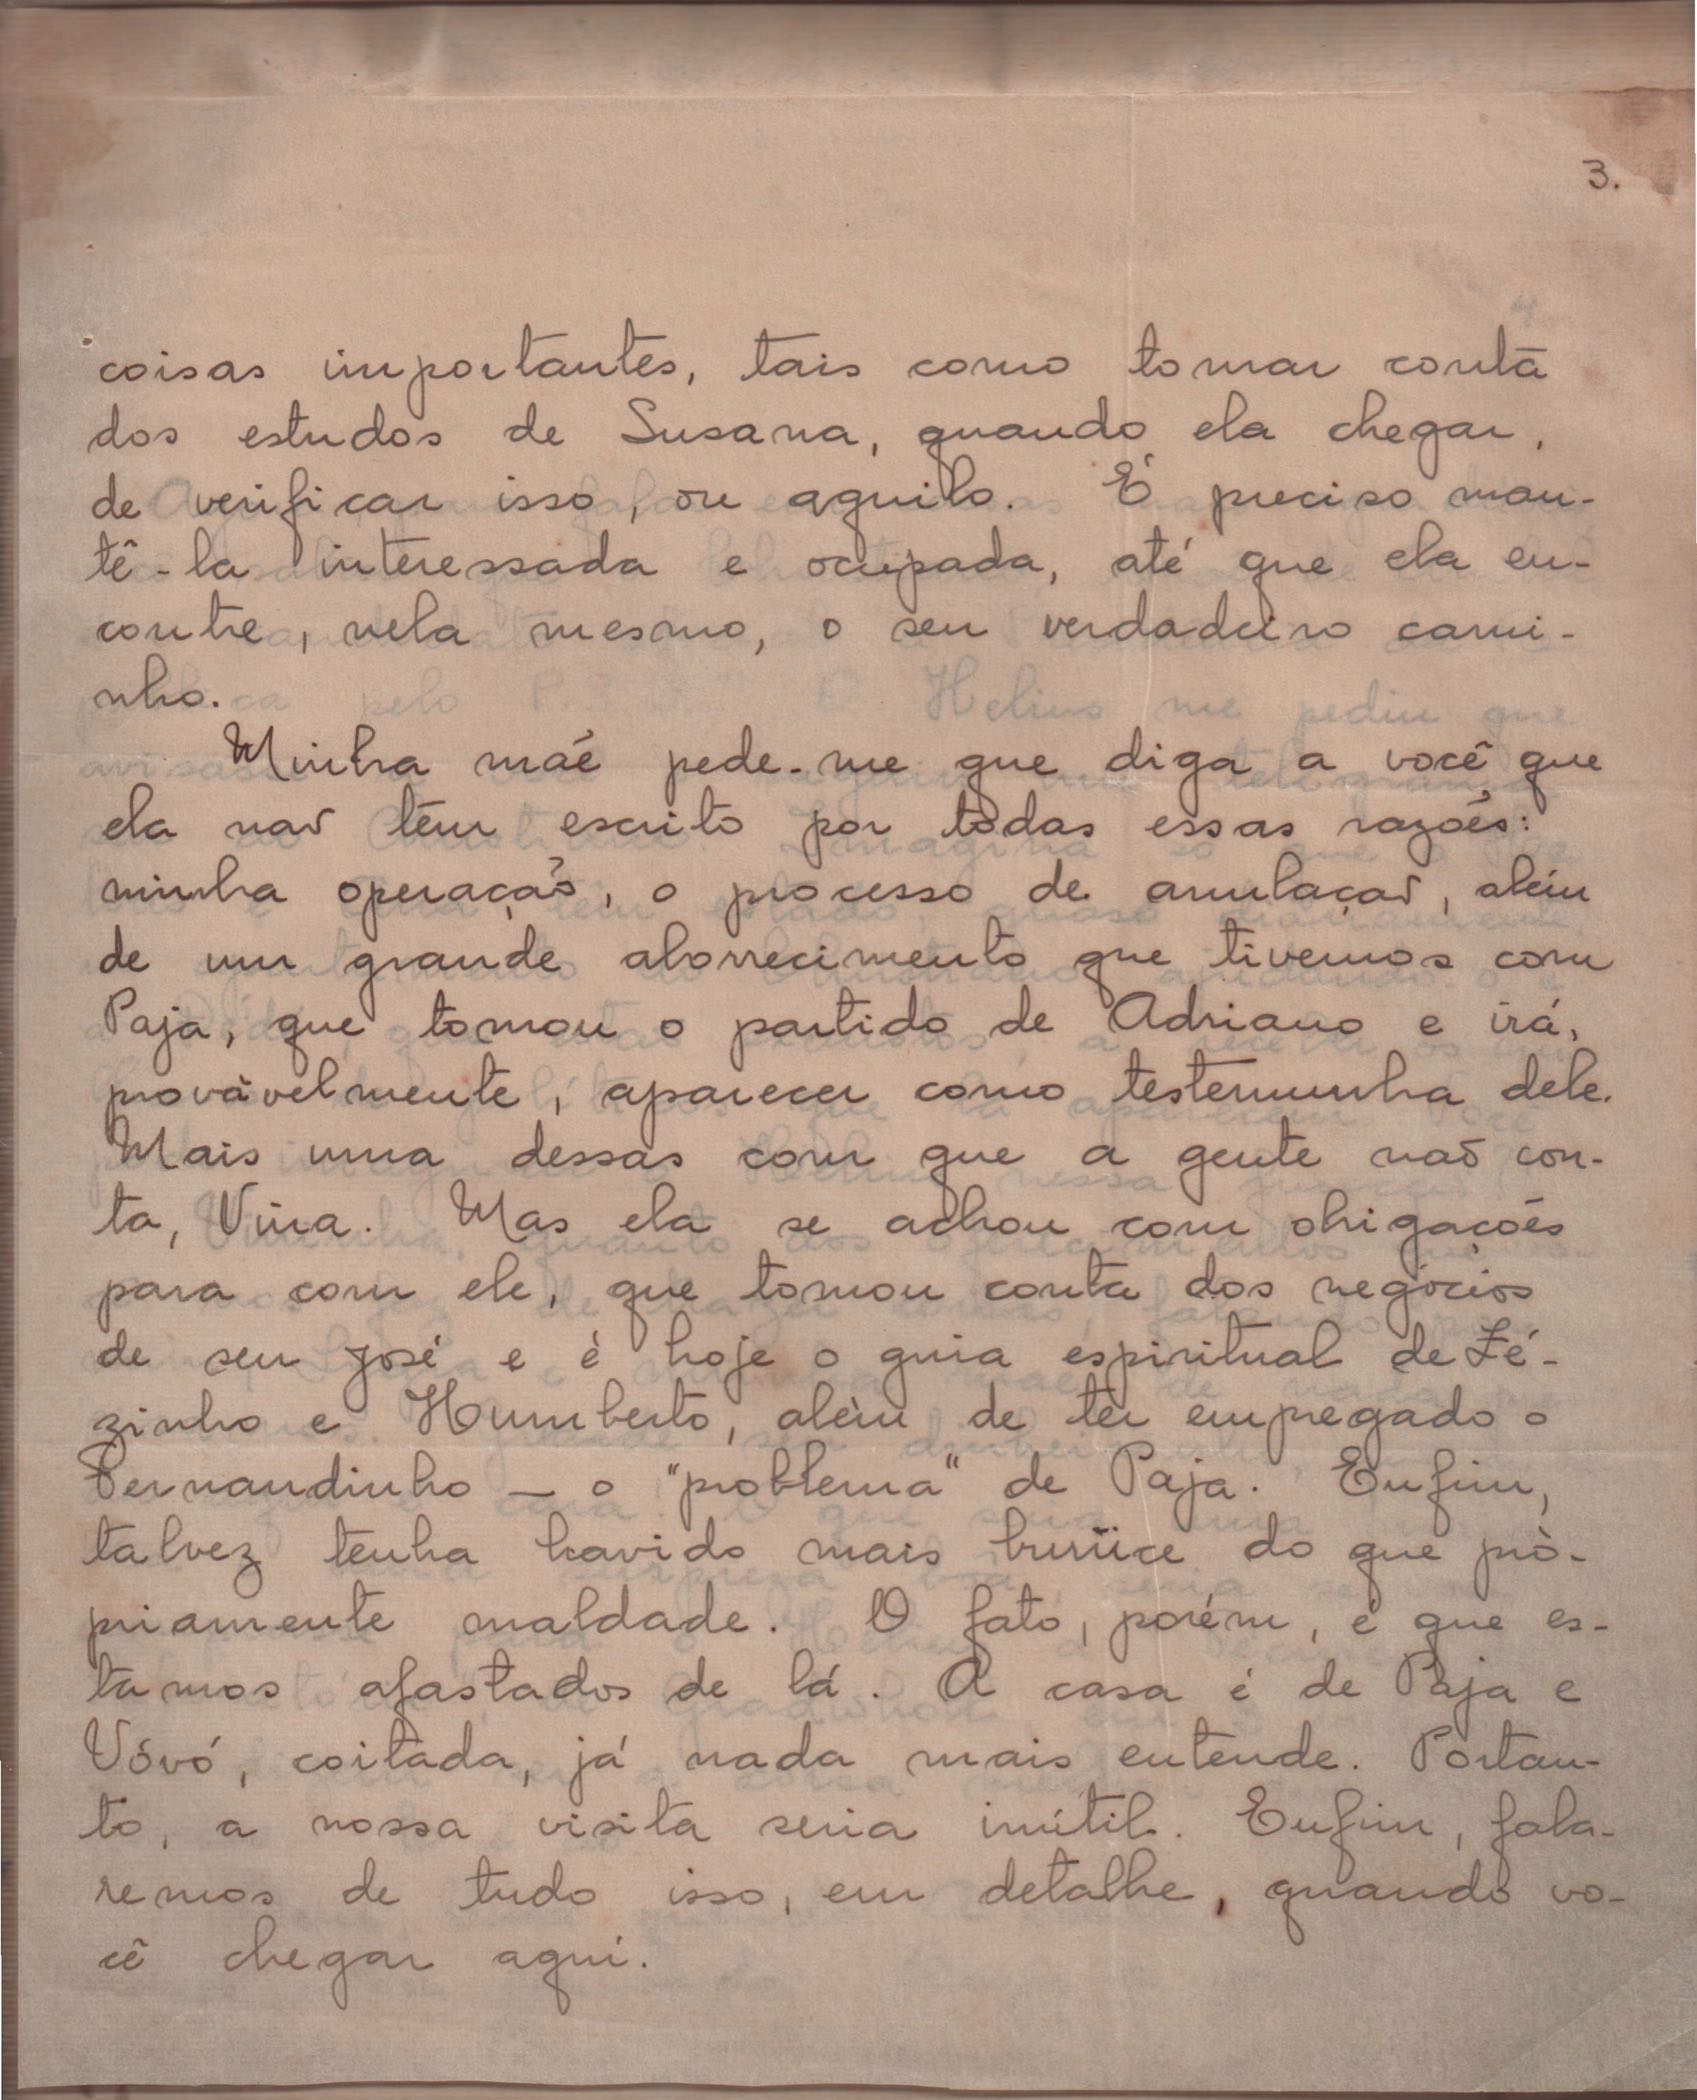 3.
coisas importantes, tais como tomar conta
dos estudos de Susana, quando ela chegar,
de verificar isso, ou aquilo. É preciso man-
tê-la interessada e ocupada, até que ela en-
contre, nela mesmo, o seu verdadeiro cami-
nho.
Minha mãe pede-me que diga a você que
ela não tem escrito por todas essas razões:
minha operação, o processo de anulação, além
de um grande aborrecimento que tivemos com
Paja, que tomou o partido de Adriano e irá,
provàvelmente, aparecer como testemunha dele.
Mais uma dessas com que a gente não con-
ta, Vina. Mas ela se achou com obrigações
para com ele, que tomou conta dos negócios
de seu José e é hoje o guia espiritual de Zé-
zinho e Humberto, além de ter empregado o
Fernandinho — o "problema" de Paja. Enfim,
talvez tenha havido mais burrice do que prò-
priamente maldade. O fato, porém, é que es-
tamos afastados de lá. A casa é de Paja e
Vóvó, coitada, já nada mais entende. Portan-
to, a nossa visita seria inútil. Enfim, fala-
remos de tudo isso, em detalhe, quando vo-
cê chegar aqui.